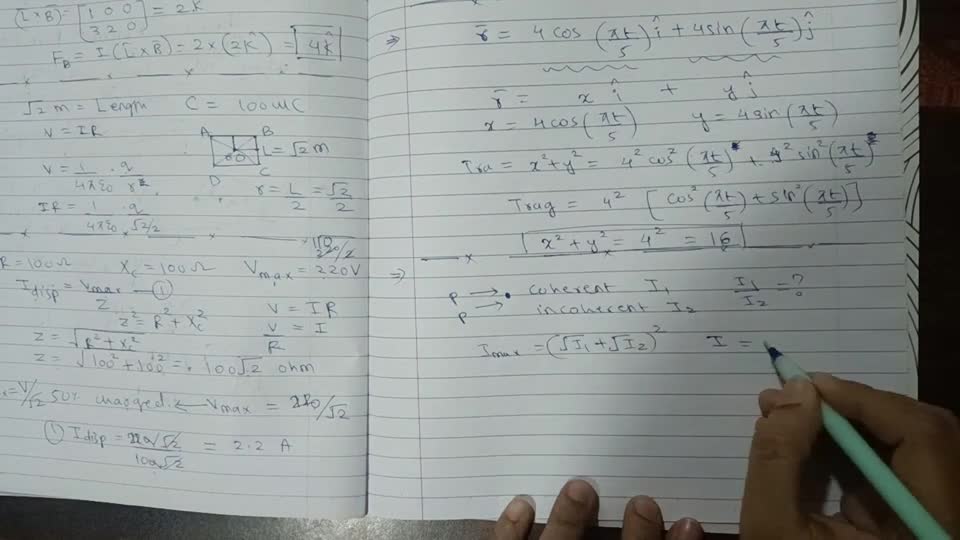 (L×B) = [1 0 0 / 3 2 0] = 2K
F_B = I(L×B) = 2×(2k̂) = 4k̂
√2 m = Length C = 100 uC
V = IR
A B
L = √2 m
D C
V = 1/4πε₀ · q/r
r = L/2 = √2/2
IR = 1/4πε₀ · q/√2/2
R = 100Ω X_C = 100Ω V_max = 220V
I_disp = V_max/Z —①
Z² = R² + X_C²
V = IR
Z = √R² + X_C²
V/R = I
Z = √100² + 100² = 100√2 ohm
V/√2 50% charged. ← V_max = 220/√2
① I_disp = 220√2/100√2 = 2.2 A
⇒ r̄ = 4cos(πt/5)î + 4sin(πt/5)ĵ
r̄ = x î + y ĵ
x = 4cos(πt/5) y = 4sin(πt/5)
Tra = x²+y² = 4² cos²(πt/5) + 4² sin²(πt/5)
Trag = 4² [cos²(πt/5) + sin²(πt/5)]
x² + y² = 4² = 16
⇒ P → coherent I₁ I₁/I₂ = ?
P → incoherent I₂
I_max = (√I₁ + √I₂)² I =